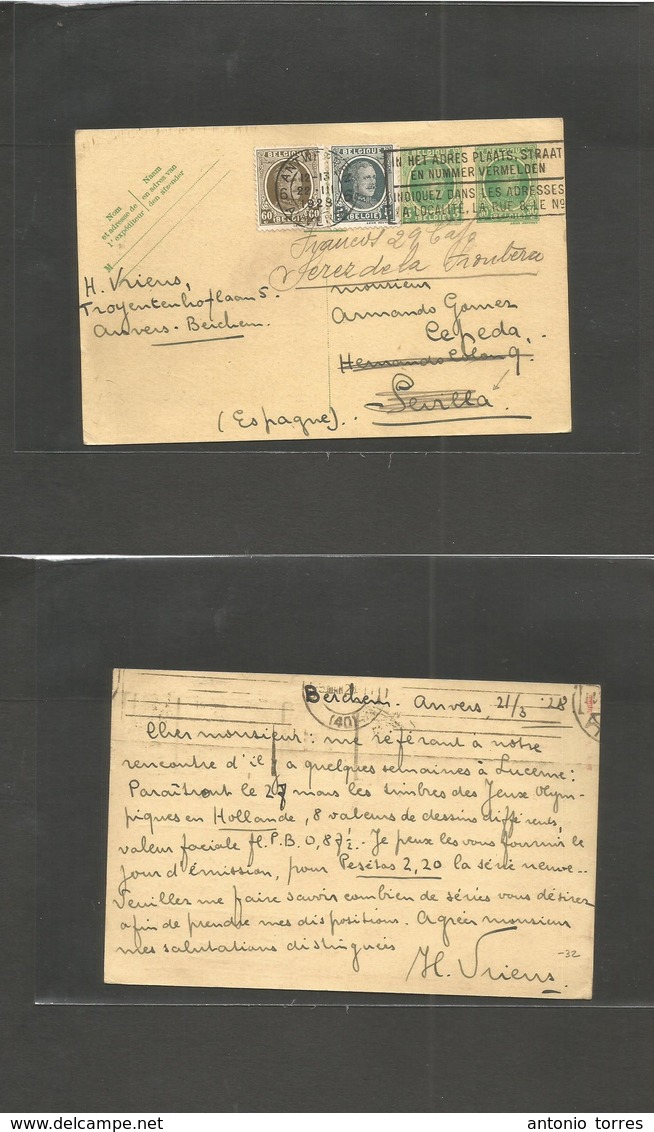 Nom
et adresse de
l'expéditeur
Naam
en adres van
den afzender
M
BELGIQUE
60 60
BELGIË
BELGIQUE
BELGIË
1928
IN HET ADRES PLAATS, STRAAT
EN NUMMER VERMELDEN
INDIQUEZ DANS LES ADRESSES
LA LOCALITÉ, LA RUE & LE No
Francos 29
Jerez de la Frontera
H. Vriens,
Troyentenhoflaan 5.
Anvers - Berchem.
Monsieur
Armando Gomez
Cepeda,
Hernando Colon 9.
Sevilla.
(Espagne).
(40)
Berchem - Anvers, 21/3 28
Cher monsieur: me référant à notre
rencontre d'il y a quelques semaines à Lucerne:
Paraîtront le 27 mars les timbres des Jeux Olym-
piques en Hollande, 8 valeurs de dessins différents,
valeur faciale fl. P.B. 0,87½. Je peux les vous fournir le
jour d'émission, pour Pesetas 2,20 la série neuve..
Veuillez me faire savoir combien de séries vous désirez
afin de prendre mes dispositions. Agréez monsieur
mes salutations distinguées
H. Vriens
-32
antonio torres